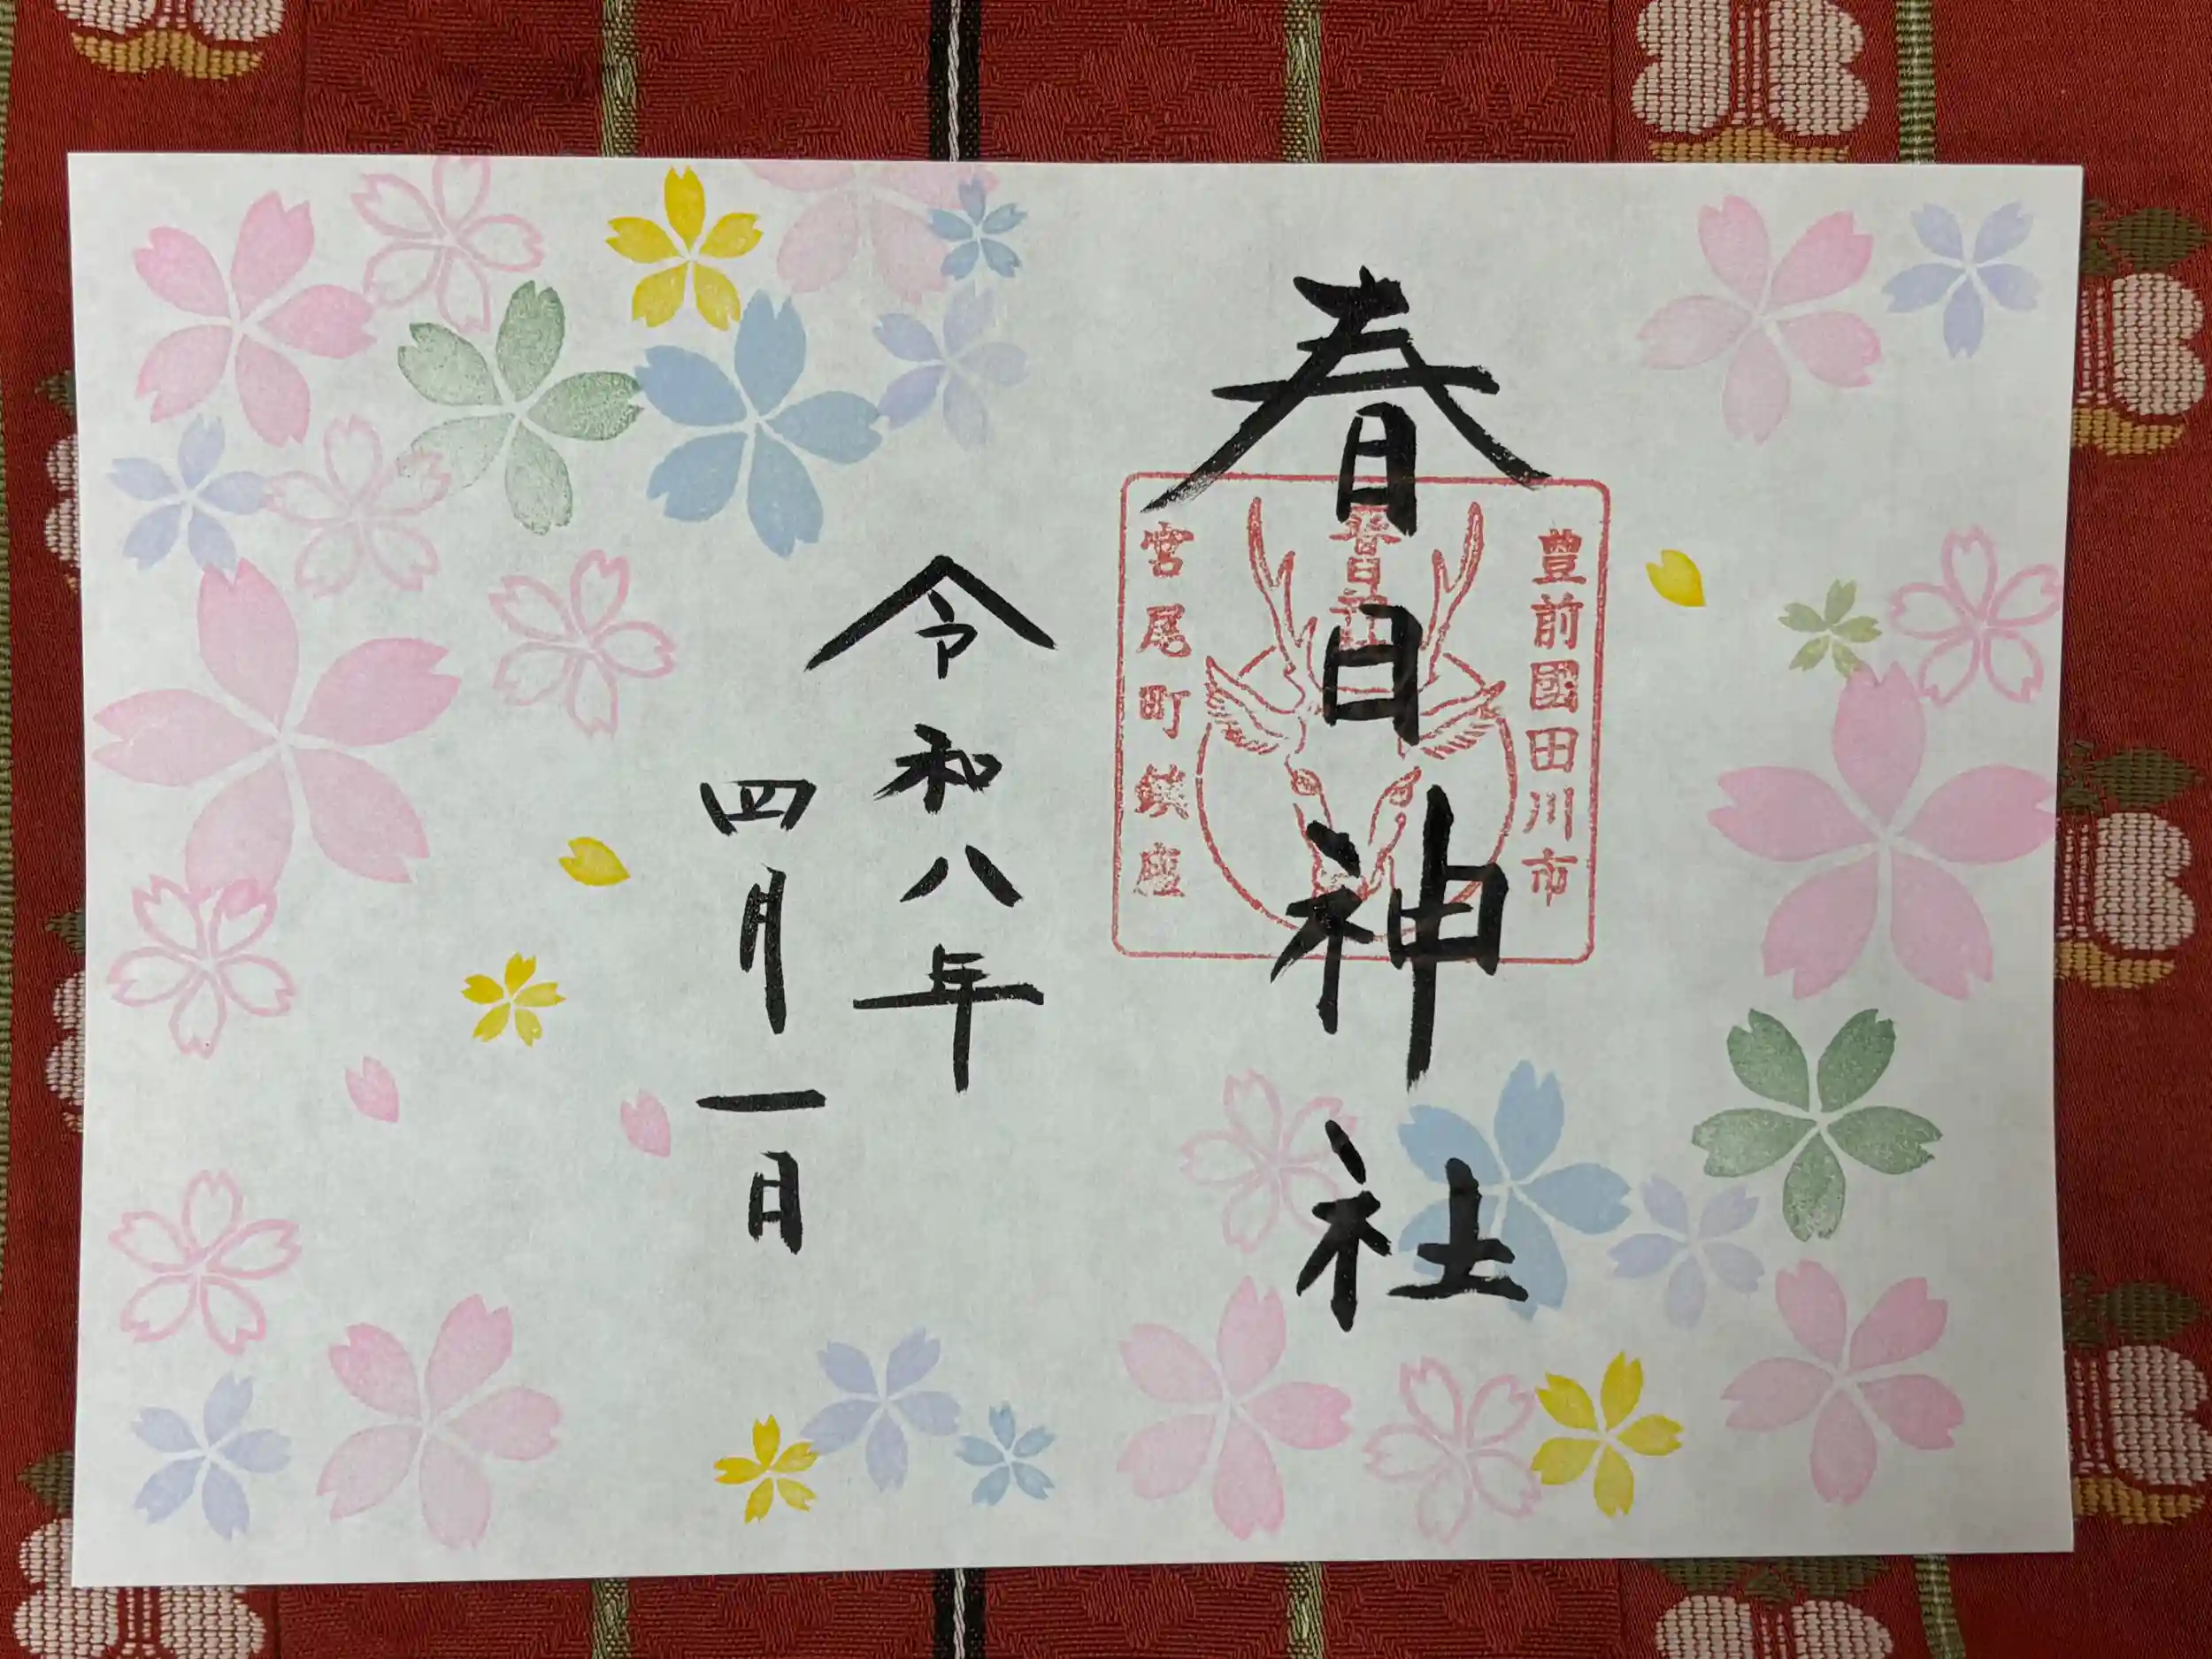 豊前國田川市
春日神社
春日神社
宮尾町鎮座
令和八年
四月一日